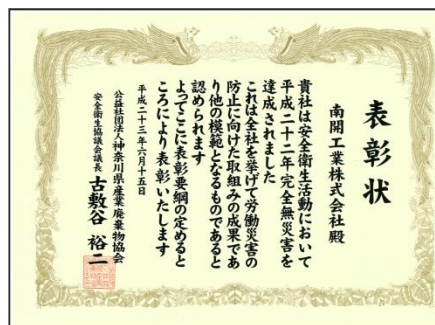 表彰状
南開工業株式会社殿
貴社は安全衛生活動において
平成二十二年完全無災害を
達成されました
これは全社を挙げて労働災害の
防止に向けた取組みの成果であ
り他の模範となるものであると
認められます
よってここに表彰要綱の定めると
ころにより表彰いたします
平成二十三年六月十五日
公益社団法人神奈川県産業廃棄物協会
安全衛生協議会議長 古敷谷裕二